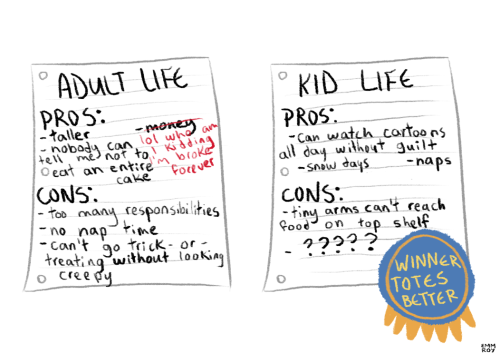 ADULT LIFE
PROS:
- taller
- money
lol who am
I kidding
i'm broke
forever
- nobody can
tell me not to
eat an entire
cake
CONS:
- too many responsibilities
- no nap time
- can't go trick-or-
treating without looking
creepy
KID LIFE
PROS:
- Can watch cartoons
all day without guilt
- snow days - naps
CONS:
- tiny arms can't reach
food on top shelf
- ?????
WINNER
TOTES
BETTER
EMM
ROY